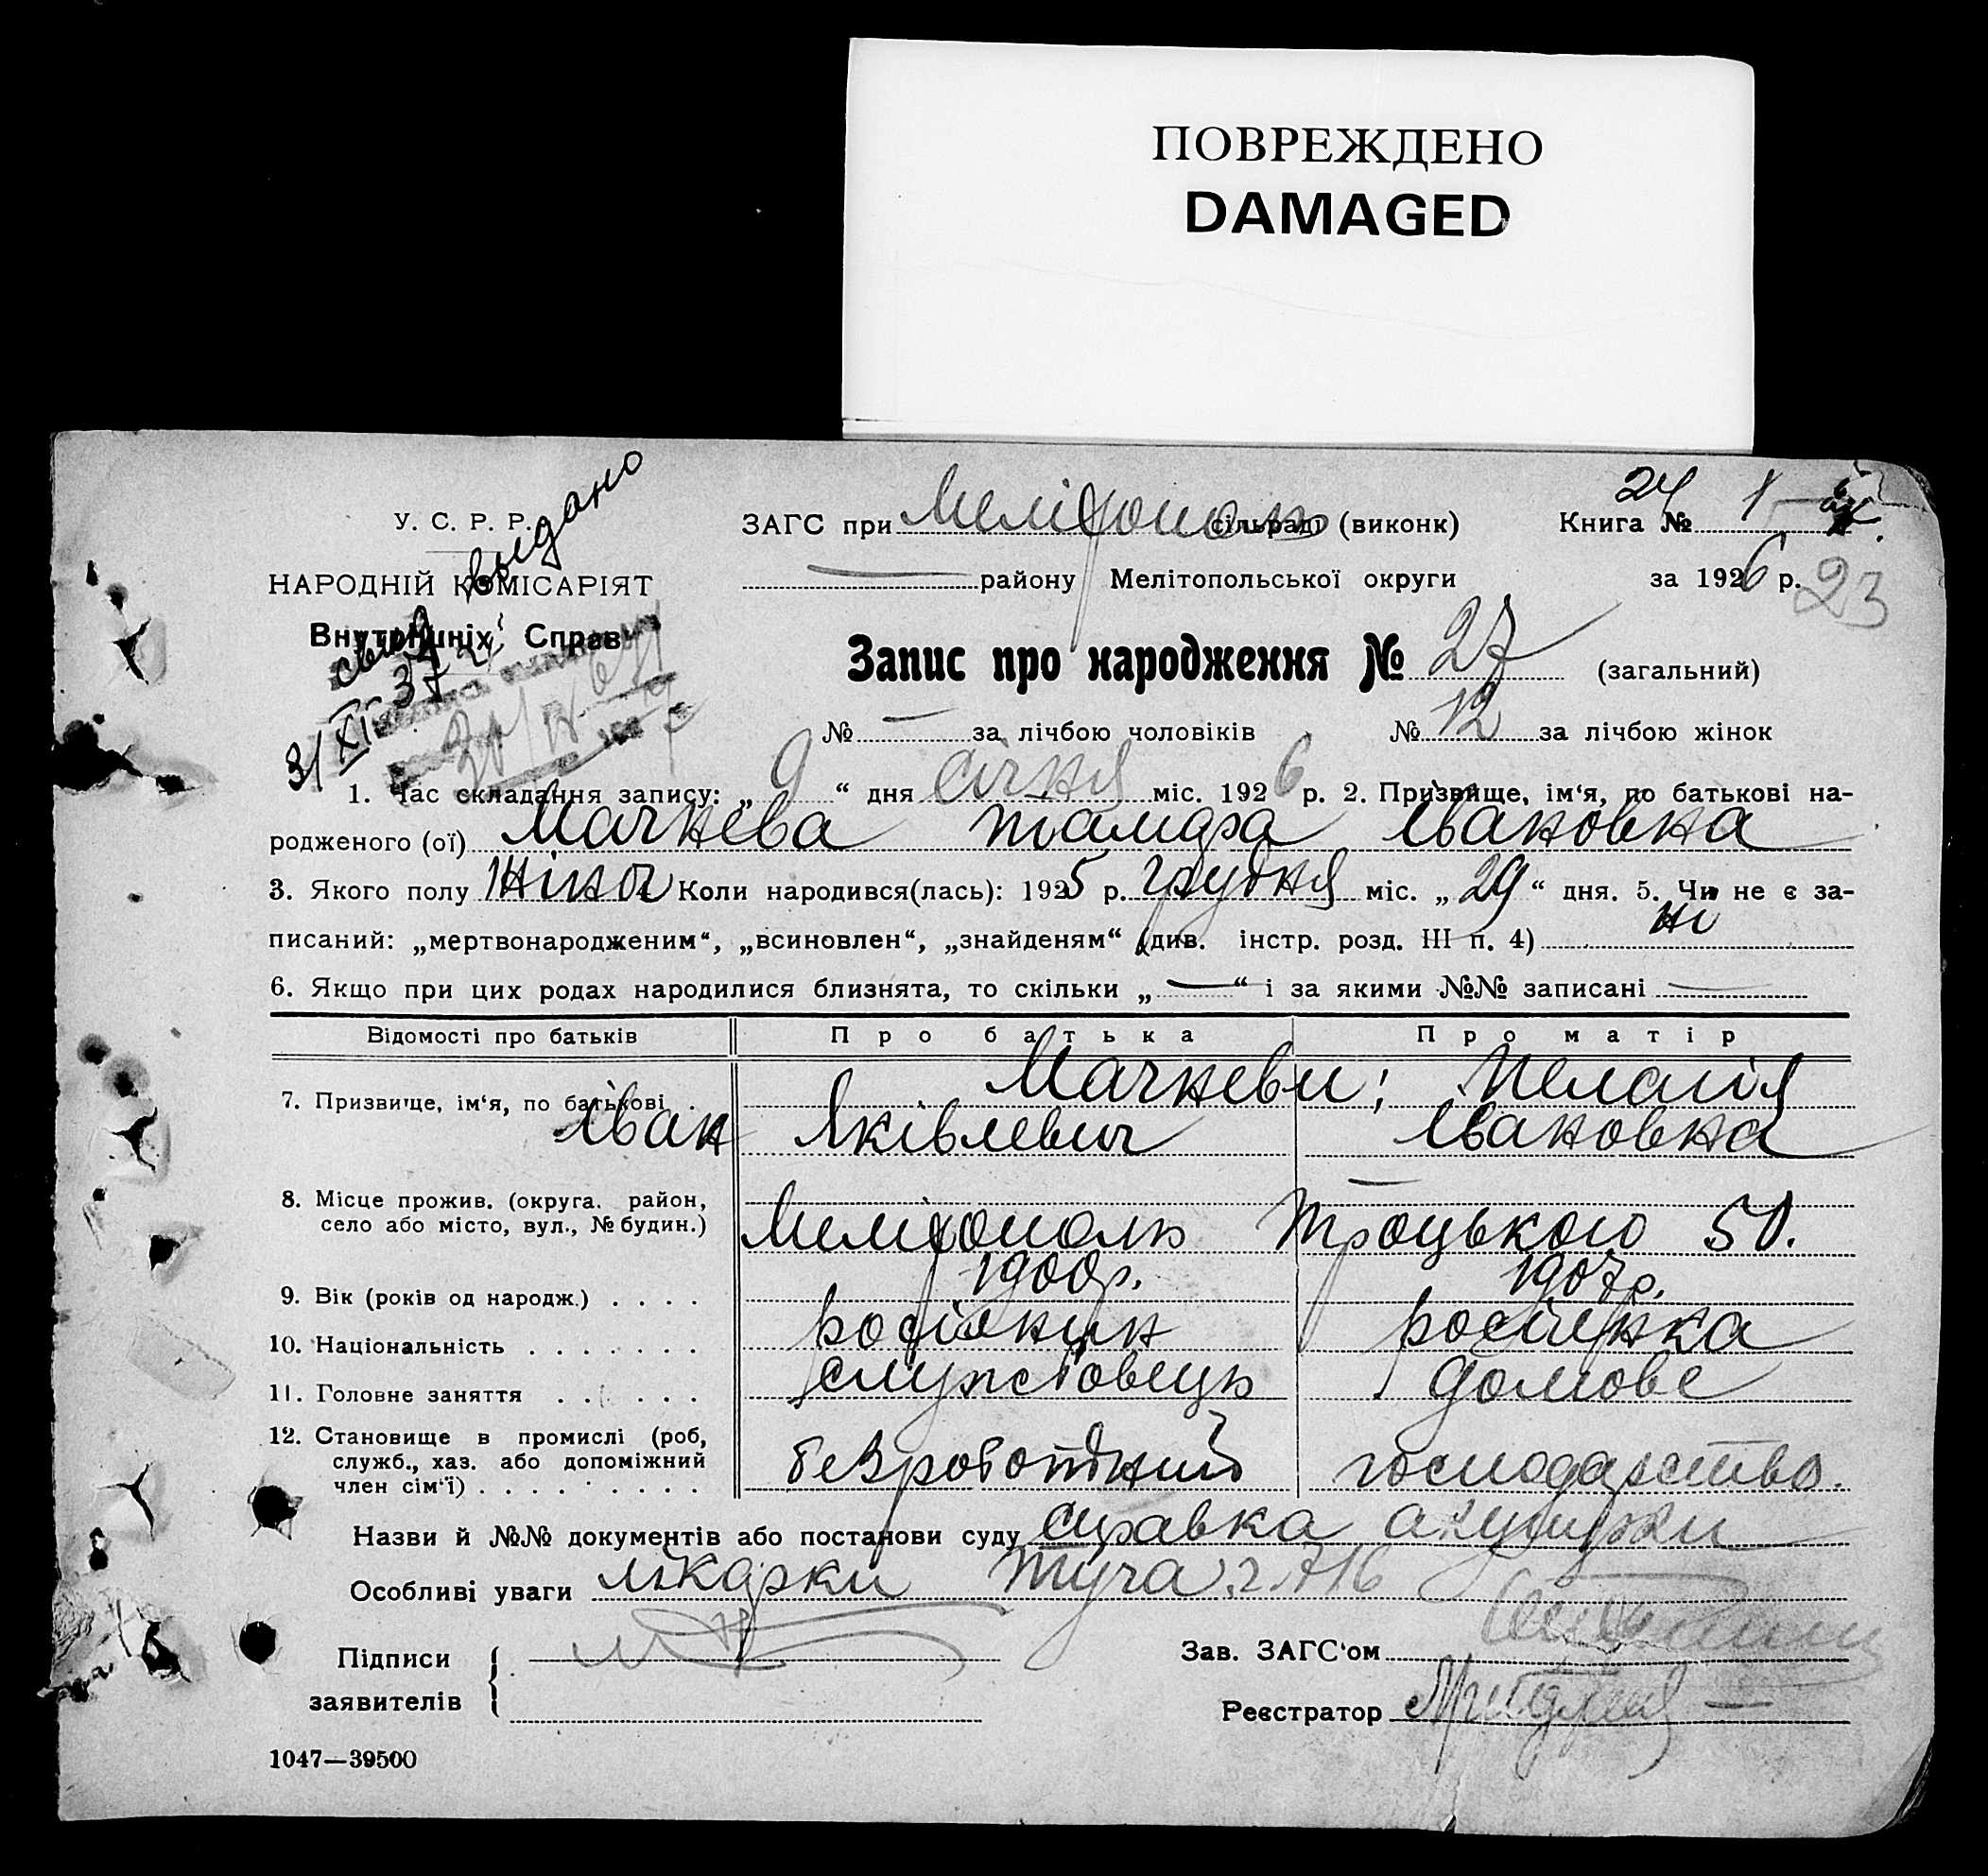 ПОВРЕЖДЕНО
DAMAGED
У. С. Р. Р.
НАРОДНІЙ КОМІСАРІЯТ
Внутрішніх Справ
выдано
31/XII 37
ЗАГС при Мелітополь сільраді (виконк) Книга № 1
24
— району Мелітопольської округи за 1926 р.
23
Запис про народження № 27 (загальний)
№ — за лічбою чоловіків № 12 за лічбою жінок
1. Час складання запису: „ 9 “ дня січня міс. 1926 р. 2. Призвище, ім‘я, по батькові на-
родженого (ої) Мачнева Тамара Івановна
3. Якого полу жіноч Коли народився(лась): 1925 р. грудня міс. „ 29 “ дня. 5. Чи не є за-
писаний: „мертвонародженим“, „всиновлен“, „знайденям“ (див. інстр. розд. III п. 4) ні
6. Якщо при цих родах народилися близнята, то скільки „ — “ і за якими №№ записані —
Відомості про батьків Про батька Про матір
7. Призвище, ім‘я, по батькові . Мачневи; Пелагія
Іван Яківлевич Івановна
8. Місце прожив. (округа. район,
село або місто, вул., № будин.) Мелітополь Троцького 50.
9. Вік (років од народж.) . . . . 1900р. 1907р.
10. Національність . . . . . . . росіянин росіянка
11. Головне заняття . . . . . . службовець домове
12. Становище в промислі (роб,
служб., хаз. або допоміжний
член сім‘ї) . . . . . . . . . безроботний господарство.
Назви й №№ документів або постанови суду справка акушерки
Особливі уваги лікарки Туча
Підписи
заявителів
Зав. ЗАГС‘ом
Реєстратор
1047—39500